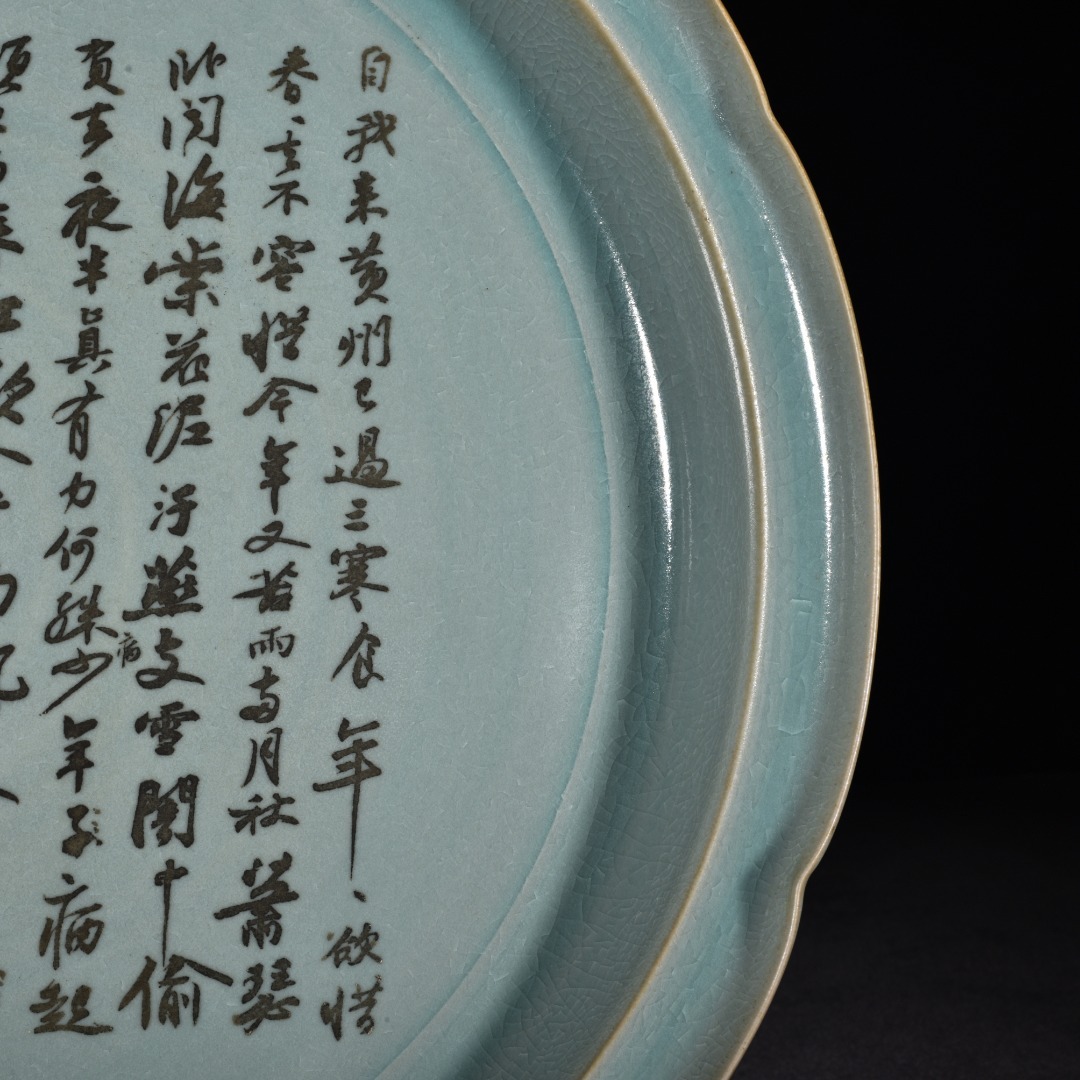 自我来黄州已過三寒食年、欲惜
春、去不容惜今年又苦雨兩月秋蕭瑟
卧聞海棠花泥汙燕支雪闇中偷
負去夜半真有力何殊病少年子病起